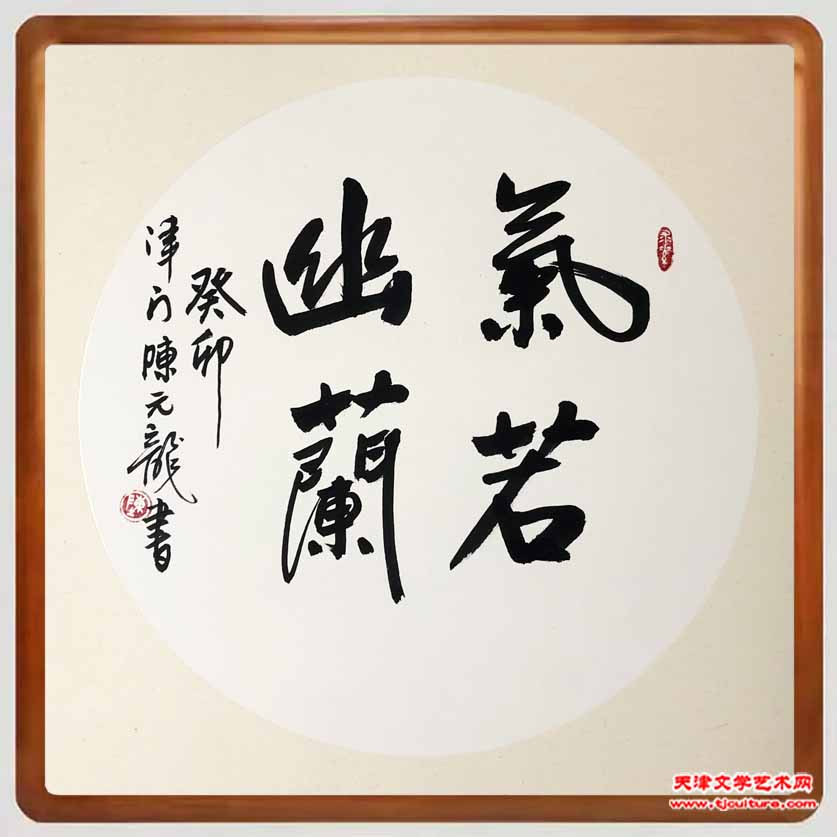 氣若
幽蘭
癸卯
津门陳元龍書
天津文学艺术网
www.tjculture.com